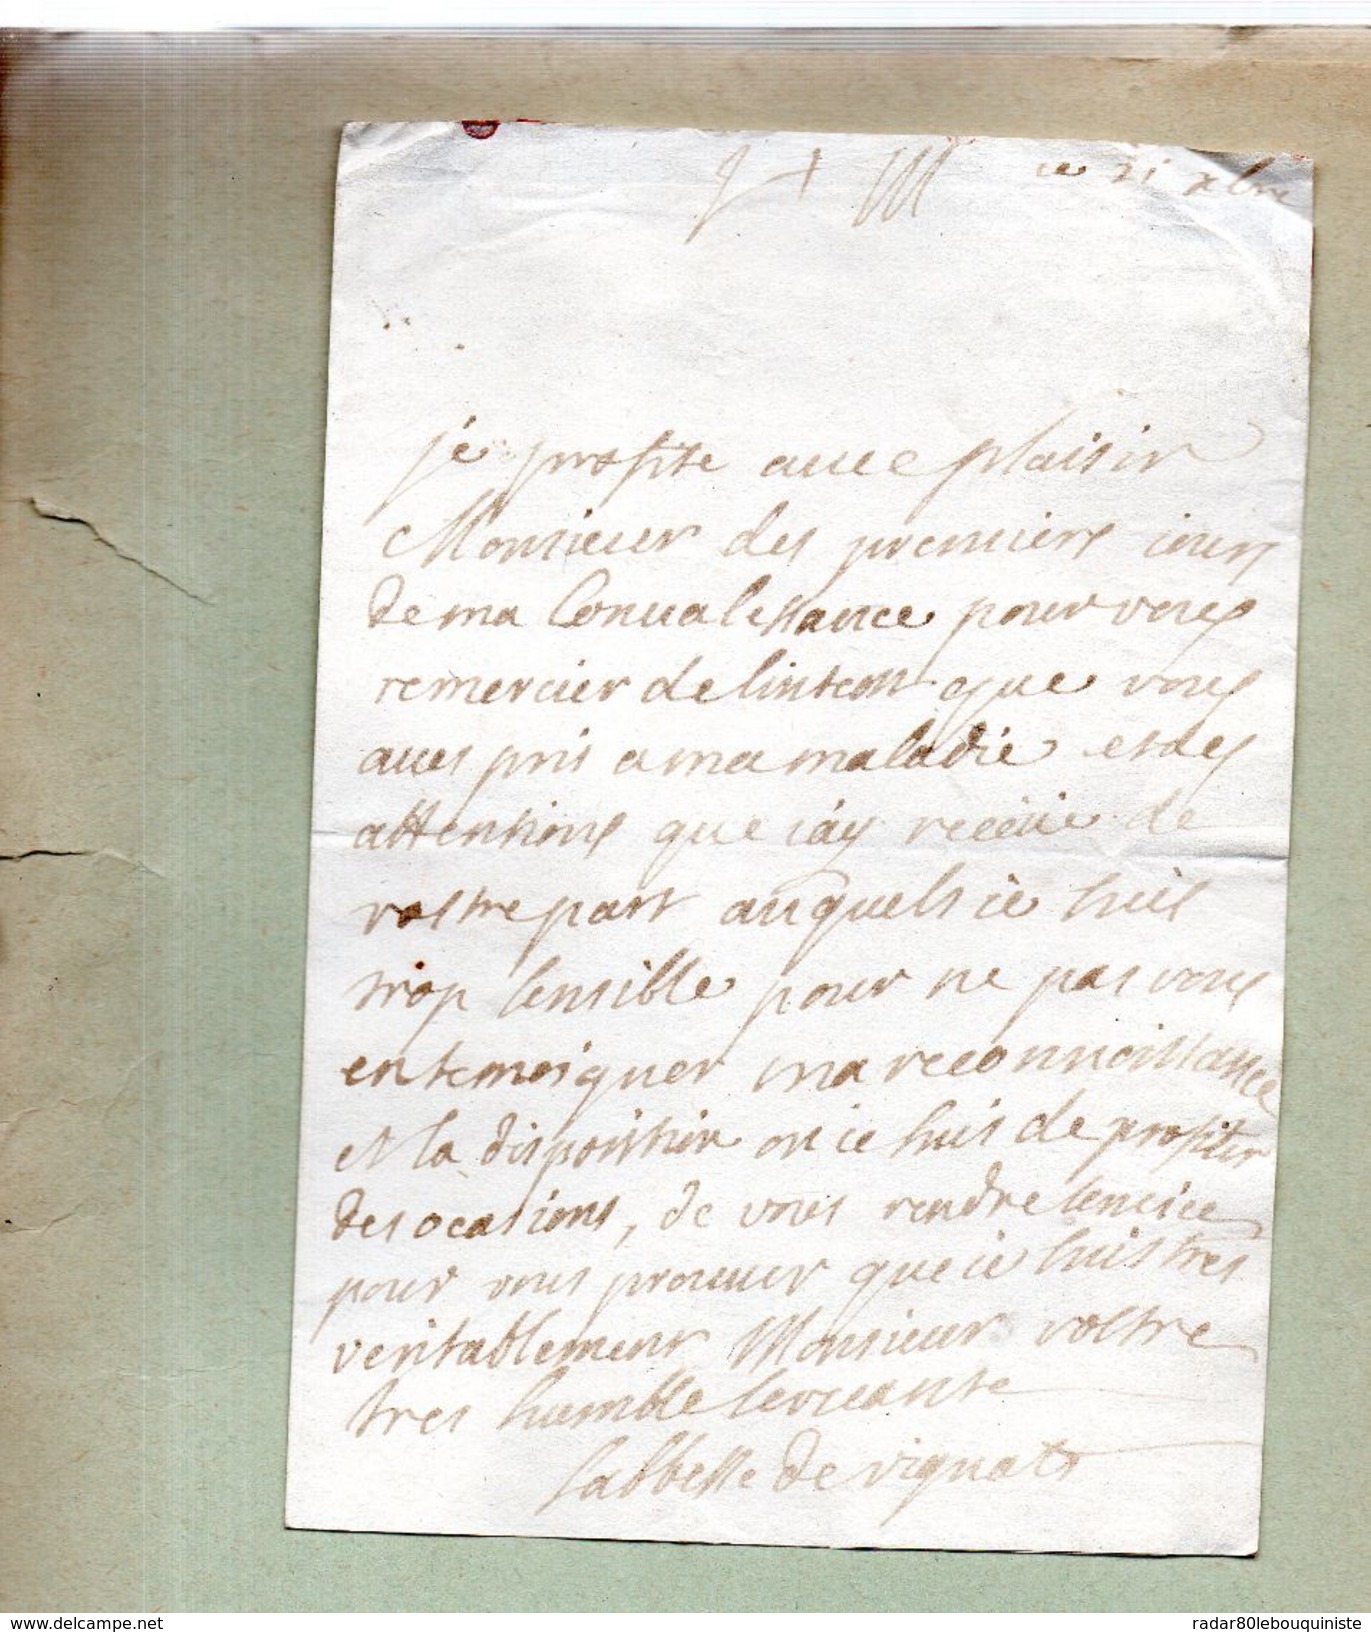 J + M ce 21 xbre
je profite auec plaisir
Monsieur des premiers iours
de ma Conualessance pour vous
remercier de lintest que vous
aues pris a ma maladie et des
attentions que iay receüe de
vostre part auquels ie suis
trop sensible pour ne pas vous
en temoigner ma reconnoissance
et la disposition ou ie suis de profiter
des ocasions, de vous rendre seruice
pour vous prouuer que ie suis tres
veritablement Monsieur vostre
tres humble seruante
labbesse de vignats
delcampe.net
radar80lebouquiniste